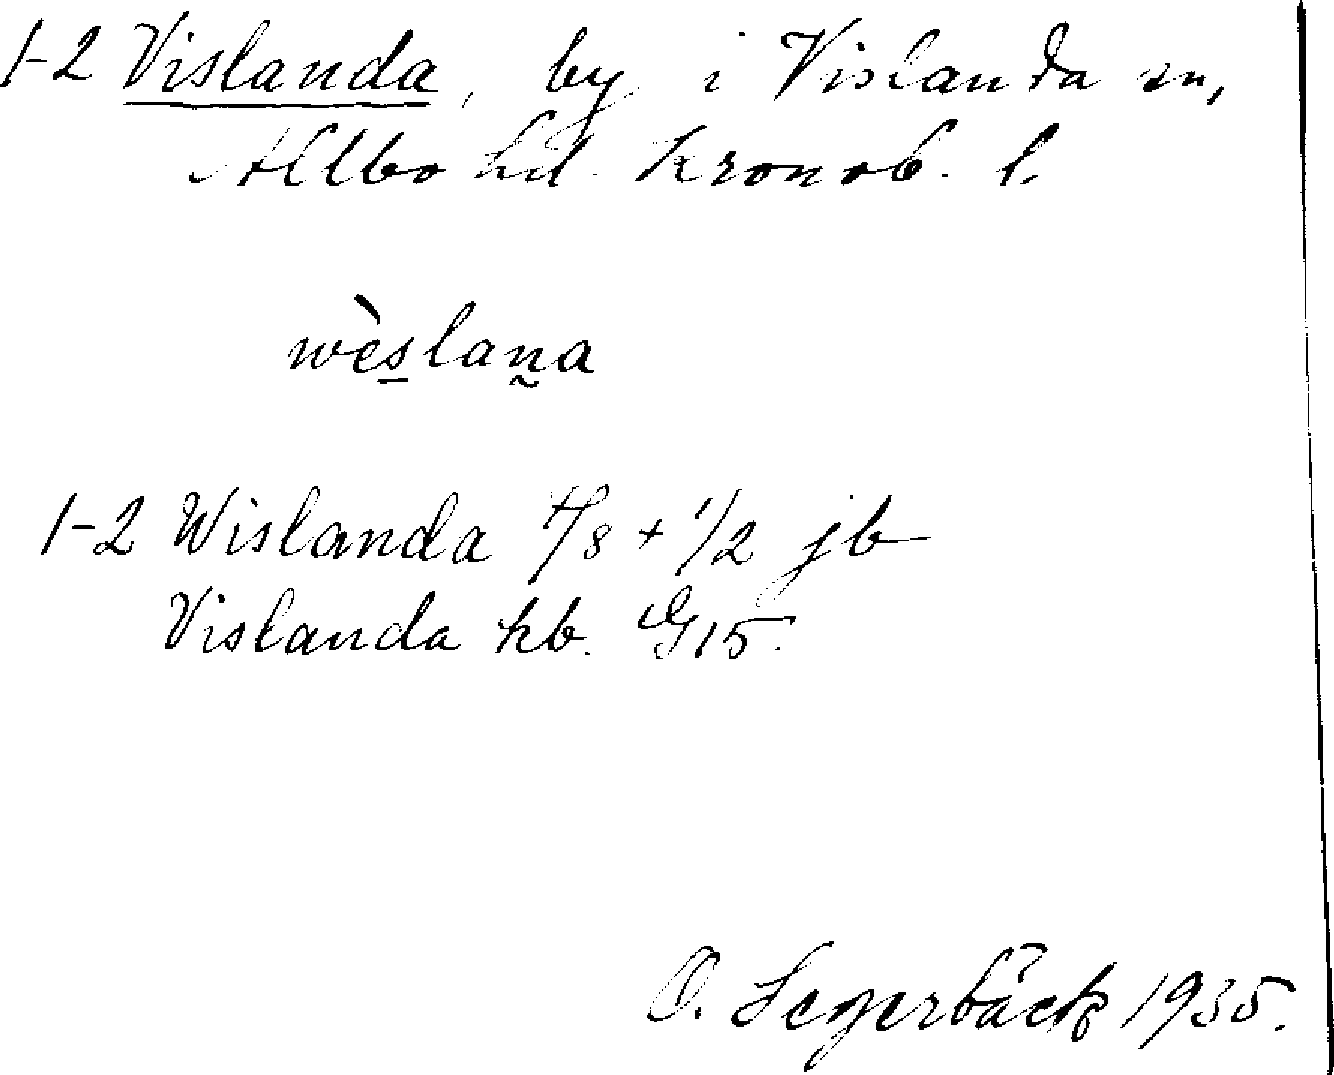 1-2 Vislanda, by i Vislanda sn,
Allbo hd. Kronob. l.
wèslana
1-2 Wislanda 7/8 + 1/2 jb
Vislanda kb. G 15.
O. Segerbäck 1935.